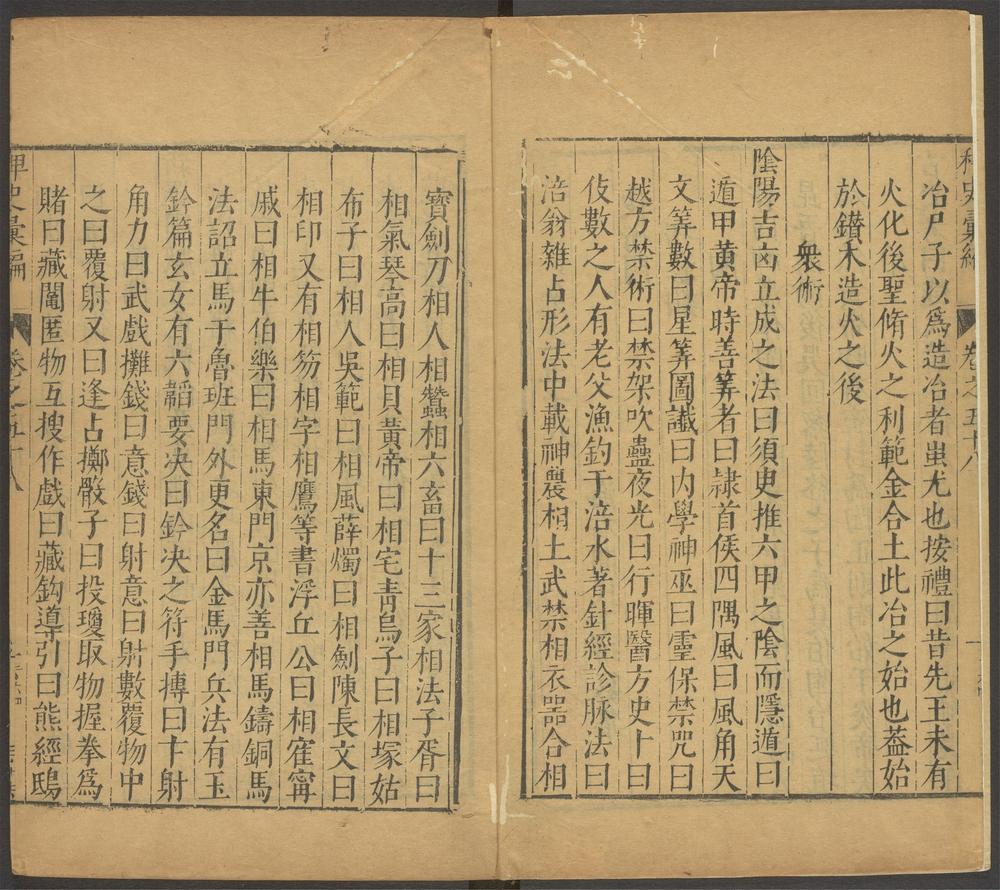 稗史彙編 卷之五十八 一
冶尸子以為造冶者蚩尤也按禮曰昔先王未有
火化後聖脩火之利範金合土此冶之始也葢始
於鑽木造火之後
衆術
陰陽吉凶立成之法曰須臾推六甲之陰而隱遁曰
遁甲黃帝時善筭者曰隷首侯四隅風曰風角天
文筭數曰星筭圖讖曰内學神巫曰靈保禁咒曰
越方禁術曰禁架吹蠱夜光曰行暉醫方史卜曰
伎數之人有老父漁釣于涪水著針經診脉法曰
涪翁雜占形法中載神農相土武禁相衣噐合相
寶劍刀相人相蠶相六畜曰十三家相法子胥曰
相氣琴高曰相貝黃帝曰相宅靑烏子曰相塚姑
布子曰相人吳範曰相風薛燭曰相劍陳長文曰
相印又有相笏相字相鷹等書浮丘公曰相寉寗
戚曰相牛伯樂曰相馬東門京亦善相馬鑄銅馬
法詔立馬于魯班門外更名曰金馬門兵法有玉
鈐篇玄女有六韜要决曰鈐决之符手摶曰卞射
角力曰武戲攤錢曰意錢曰射意曰射數覆物中
之曰覆射又曰逢占擲骰子曰投瓊取物握拳為
賭曰藏鬮匿物互搜作戲曰藏鈎導引曰熊經鴟
稗史彙編 卷之五十八